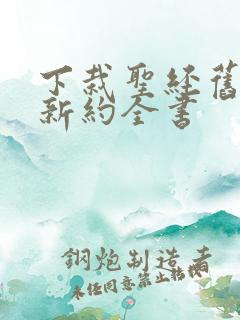 下裁聖經舊
新約全書
鋼炮制造者
未经同意禁止转载